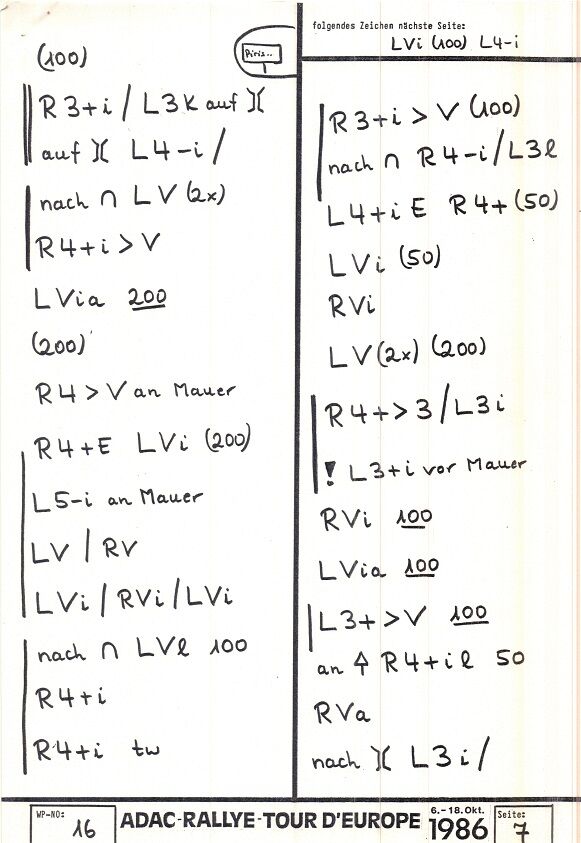 (100)
Piris..
R3+i / L3K auf )(
auf )( L4-i /
nach ∩ LV (2x)
R4+i > V
LVia 200
(200)
R4 > V an Mauer
R4+E LVi (200)
L5-i an Mauer
LV / RV
LVi / RVi / LVi
nach ∩ LVl 100
R4+i
R4+i tw
folgendes Zeichen nächste Seite:
LVi (100) L4-i
R3+i > V (100)
nach ∩ R4-i / L3l
L4+i E R4+ (50)
LVi (50)
RVi
LV (2x) (200)
R4+ > 3 / L3i
! L3+i vor Mauer
RVi 100
LVia 100
L3+ > V 100
an R4+il 50
RVa
nach )( L3i /
WP-NO: 16
ADAC-RALLYE-TOUR D'EUROPE 6.-18.Okt. 1986
Seite: 7